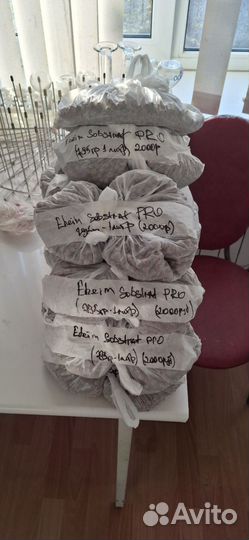 Eheim Substrat PRO
(985гр-1 лит) 2000р
Eheim Substrat PRO
985гр-1 лит) (2000р)
Eheim Substrat PRO
(985гр-1 лит) (2000р)
Eheim Substrat PRO
(985гр-1 лит) (2000р)
Avito